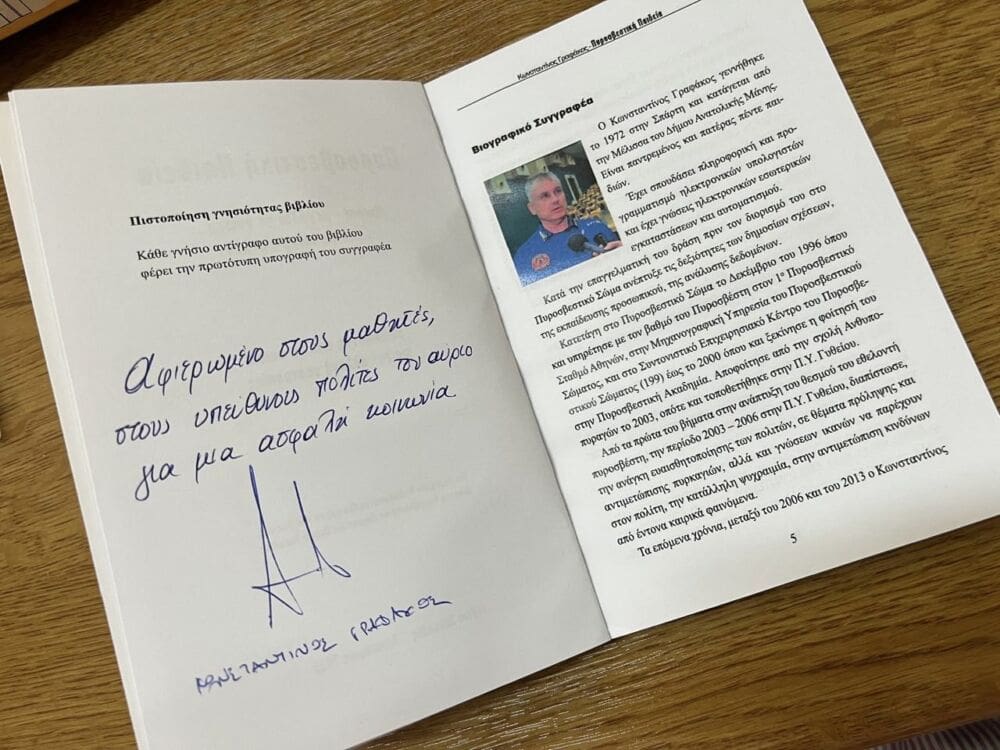 Πιστοποίηση γνησιότητας βιβλίου
Κάθε γνήσιο αντίγραφο αυτού του βιβλίου
φέρει την πρωτότυπη υπογραφή του συγγραφέα
Αφιερωμένο στους μαθητές,
στους υπεύθυνους πολίτες του αύριο
για μια ασφαλή κοινωνία
ΚΩΝΣΤΑΝΤΙΝΟΣ ΓΡΑΦΑΚΟΣ
Κωνσταντίνος Γραφάκος - Πυροσβεστική Παιδεία
Βιογραφικό Συγγραφέα
Ο Κωνσταντίνος Γραφάκος γεννήθηκε
το 1972 στην Σπάρτη και κατάγεται από
την Μέλισσα του Δήμου Ανατολικής Μάνης.
Είναι παντρεμένος και πατέρας πέντε παι-
διών.
Έχει σπουδάσει πληροφορική και προ-
γραμματισμό ηλεκτρονικών υπολογιστών
και έχει γνώσεις ηλεκτρονικών εσωτερικών
εγκαταστάσεων και αυτοματισμού.
Κατά την επαγγελματική του δράση πριν τον διορισμό του στο
Πυροσβεστικό Σώμα ανέπτυξε τις δεξιότητες των δημοσίων σχέσεων,
της εκπαίδευσης προσωπικού, της ανάλυσης δεδομένων.
Κατετάγη στο Πυροσβεστικό Σώμα το Δεκέμβριο του 1996 όπου
και υπηρέτησε με τον βαθμό του Πυροσβέστη στον 1° Πυροσβεστικό
Σταθμό Αθηνών, στην Μηχανογραφική Υπηρεσία του Πυροσβεστικού
Σώματος, και στο Συντονιστικό Επιχειρησιακό Κέντρο του Πυροσβε-
στικού Σώματος (199) έως το 2000 όπου και ξεκίνησε η φοίτησή του
στην Πυροσβεστική Ακαδημία. Αποφοίτησε από την σχολή Ανθυπο-
πυραγών το 2003, οπότε και τοποθετήθηκε στην Π.Υ. Γυθείου.
Από τα πρώτα του βήματα στην ανάπτυξη του θεσμού του εθελοντή
πυροσβέστη, την περίοδο 2003 – 2006 στην Π.Υ. Γυθείου, διαπίστωσε,
την ανάγκη ευαισθητοποίησης των πολιτών, σε θέματα πρόληψης και
αντιμετώπισης πυρκαγιών, αλλά και γνώσεων ικανών να παρέχουν
στον πολίτη, την κατάλληλη ψυχραιμία, στην αντιμετώπιση κινδύνων
από έντονα καιρικά φαινόμενα.
Τα επόμενα χρόνια, μεταξύ του 2006 και του 2013 ο Κωνσταντίνος
5